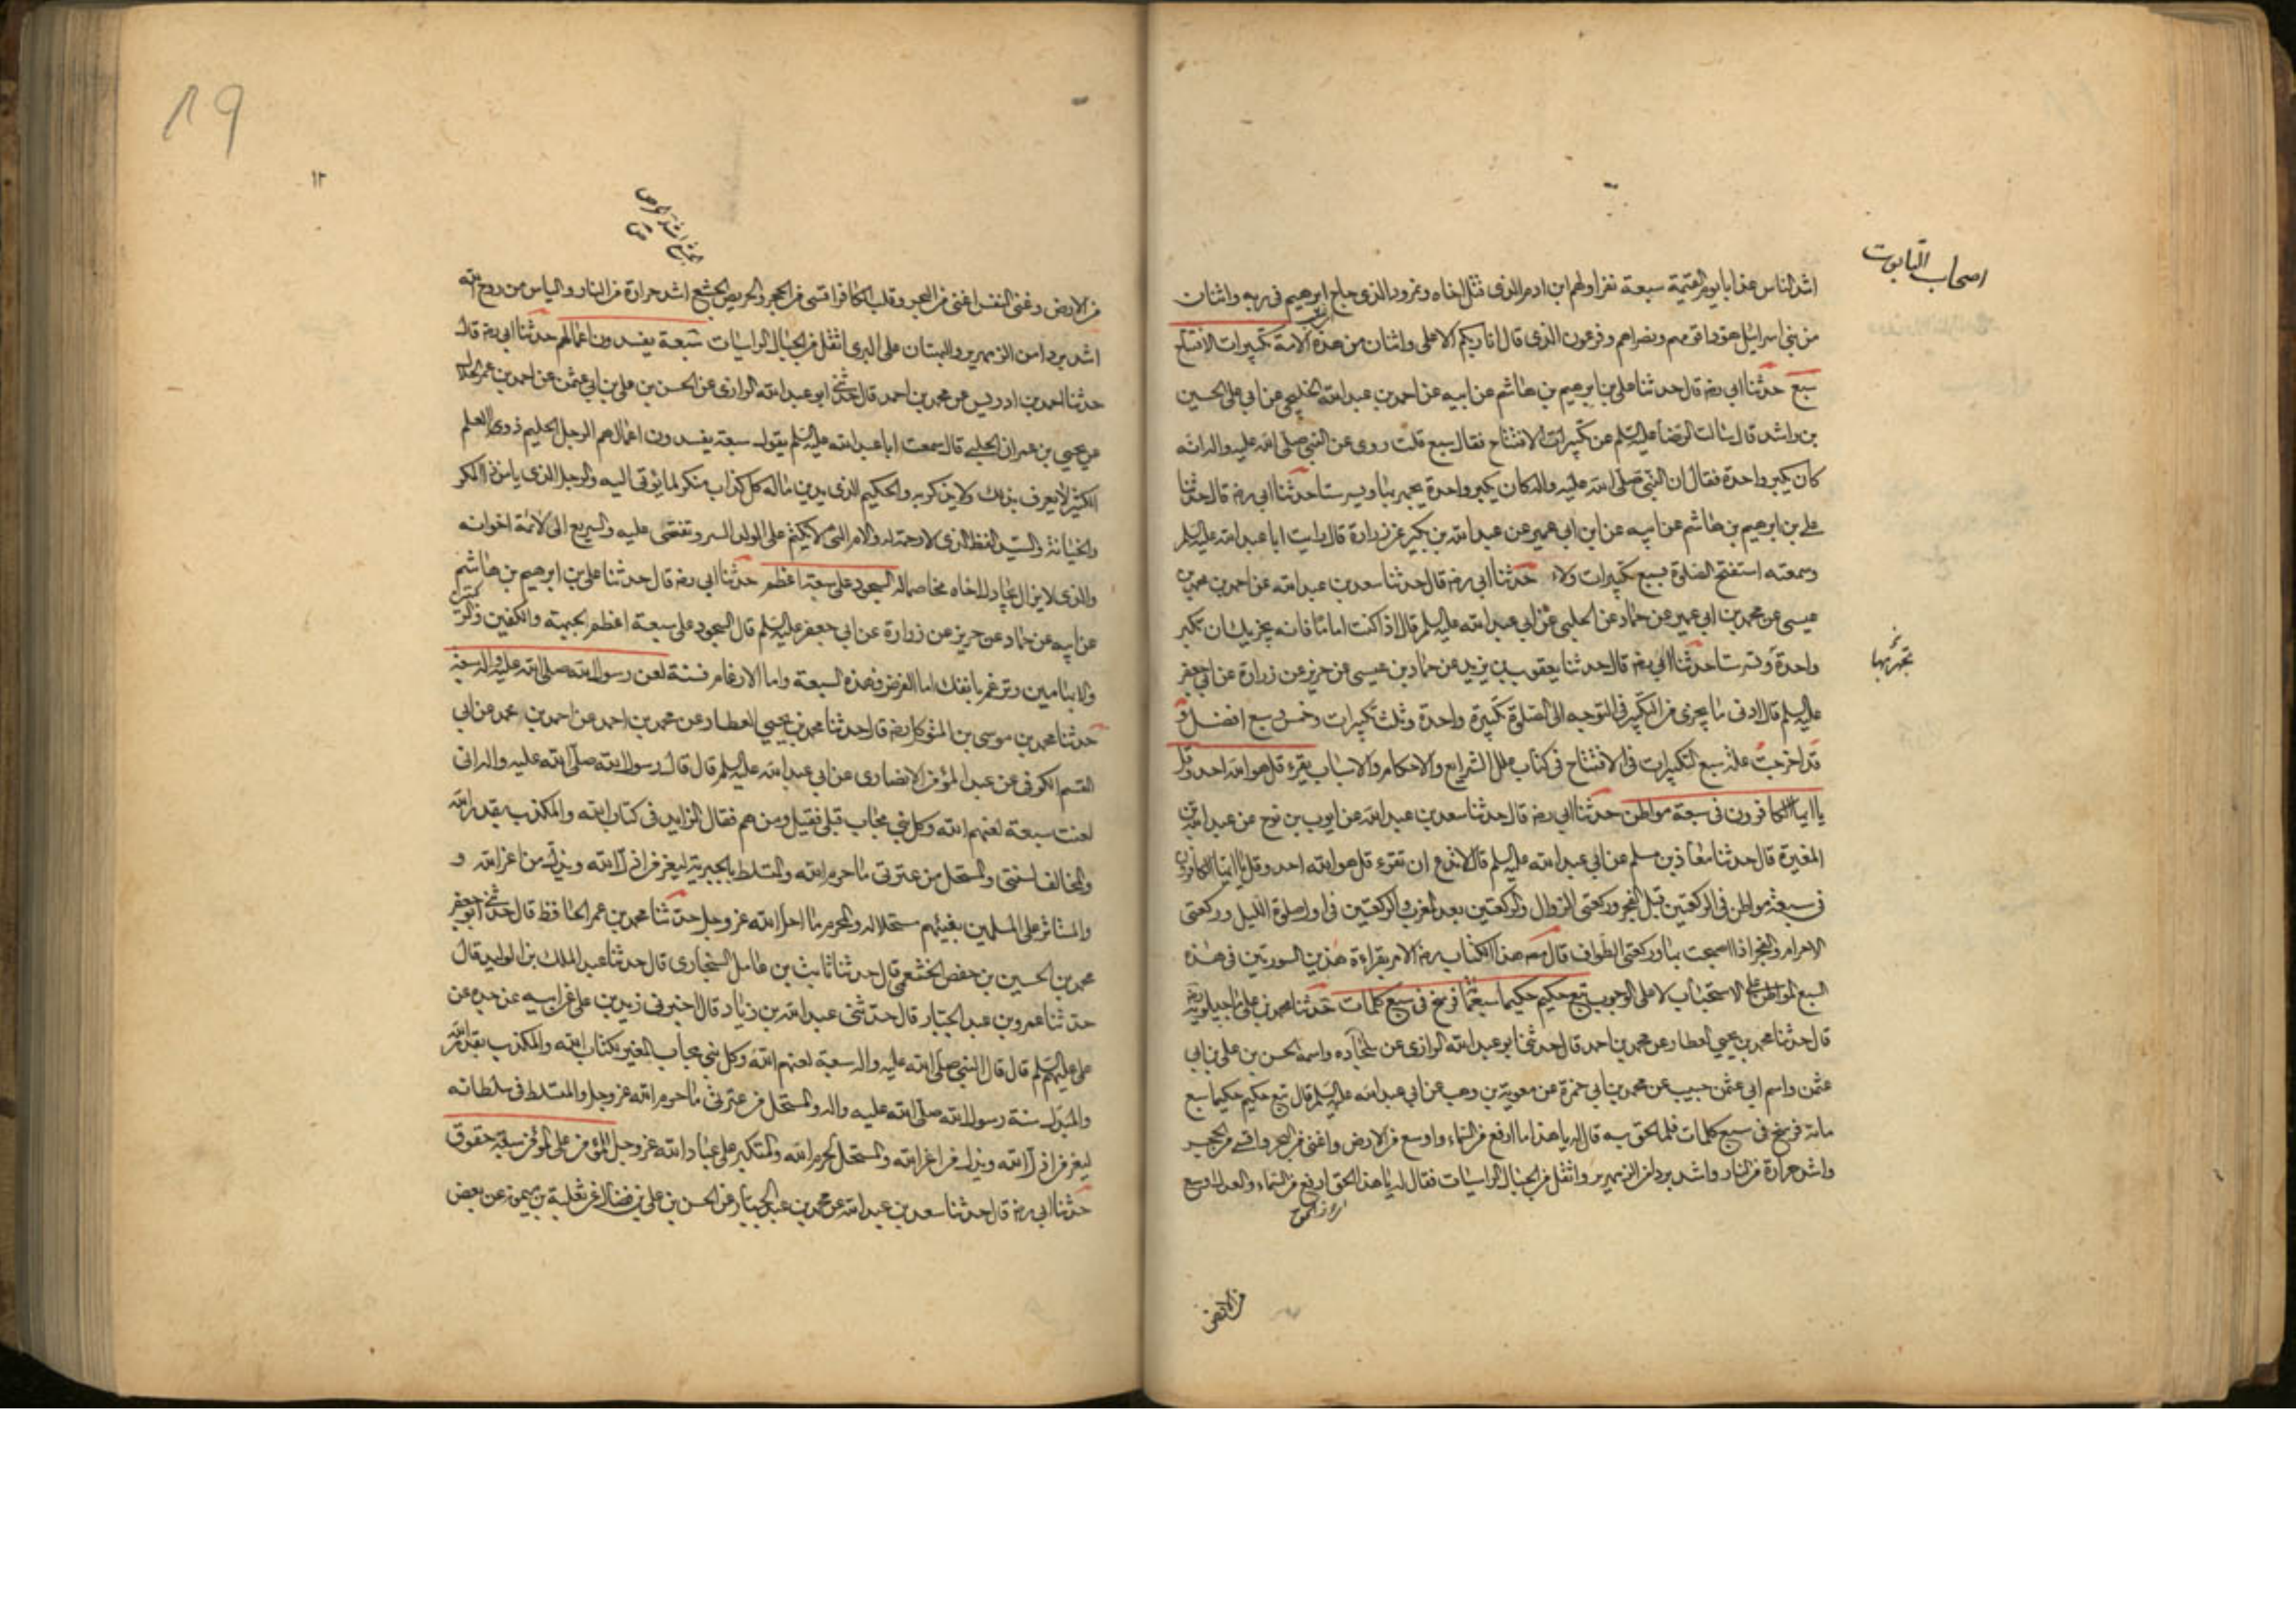 اصحاب التابوت
اشد الناس عذابا يوم القيمة سبعة نفر اولهم ابن ادم الذى قتل اخاه ونمرود الذى حاج ابرهيم فى ربه واثنان
من بنى اسرائيل هودا قومهم ونصراهم وفرعون الذى قال انا ربكم الاعلى واثنان من هذه الامة تكبيرات الافتتاح
سبع حدثنا ابى رضه قال حدثنا على بن ابرهيم بن هاشم عن ابيه عن احمد بن عبد الله الخليجى عن ابى على الحسين
بن راشد قال سالت الرضا عليه السلم عن تكبيرات الافتتاح فقال سبع قلت روى عن النبى صلى الله عليه واله انه
كان يكبر واحدة فقال ان النبى صلى الله عليه واله كان يكبر واحدة يجهر بها ويسر ستا حدثنا ابى رضه قال حدثنا
على بن ابرهيم بن هاشم عن ابيه عن ابن ابى عمير عن عبد الله بن بكير عن زرارة قال رايت ابا عبد الله عليه السلم
وسمعته استفتح الصلوة بسبع تكبيرات ولاء حدثنا ابى رضه قال حدثنا سعد بن عبد الله عن احمد بن محمد بن
عيسى عن محمد بن ابى عمير عن حماد عن الحلبى عن ابى عبد الله عليه السلم قال اذا كنت اماما فانه يجزيك ان تكبر
واحدة وتسر ستا حدثنا ابى رضه قال حدثنا يعقوب بن يزيد عن حماد بن عيسى عن حريز عن زرارة عن ابى جعفر
تجهر بها
عليه السلم قال ادنى ما يجزى من التكبير فى التوجه الى الصلوة تكبيرة واحدة وثلث تكبيرات وخمس وسبع افضل و
قد اخرجت علة سبع التكبيرات فى الافتتاح فى كتاب علل الشرايع والاحكام والاسباب يقرء قل هو الله احد وقل
يا ايها الكافرون فى سبعة مواطن حدثنا ابى رضه قال حدثنا سعد بن عبد الله عن ايوب بن نوح عن عبد الله بن
المغيرة قال حدثنا معاذ بن مسلم عن ابى عبد الله عليه السلم قال لا تدع ان تقرء قل هو الله احد وقل يا ايها الكافرون
فى سبعة مواطن فى الركعتين قبل الفجر وركعتى الزوال والركعتين بعد المغرب والركعتين فى اول صلوة الليل وركعتى
الاحرام والفجر اذا اصبحت بها وركعتى الطواف قال مصنف هذا الكتاب رضه الامر بقراءة هذين السورتين فى هذه
السبع المواطن على الاستحباب لا على الوجوب تبع حكيم حكيما سبعمائة فرسخ فى سبع كلمات حدثنا محمد بن على ماجيلويه رضه
قال حدثنا محمد بن يحيى العطار عن محمد بن احمد قال حدثنى ابو عبد الله الرازى عن سجاده واسمه الحسن بن على بن ابى
عثمن واسم ابى عثمن حبيب عن محمد بن ابى حمزة عن معوية بن وهب عن ابى عبد الله عليه السلم قال تبع حكيم حكيما سبع
مائة فرسخ فى سبع كلمات فلما لحق به قال له يا هذا ما ارفع من السماء واوسع من الارض واغنى من البحر واقسى من الحجر
واشد حرارة من النار واشد بردا من الزمهرير واثقل من الجبال الراسيات فقال له يا هذا الحق ارفع من السماء والعدل اوسع
من الارض
19
١٢
من الارض وغنى النفس اغنى من البحر وقلب الكافر اقسى من الحجر والحريص الجشع اشد حرارة من النار والياس من روح الله
اشد بردا من الزمهرير والبهتان على البرى اثقل من الجبال الراسيات سبعة يفسدون اعمالهم حدثنا ابى رضه قال
حدثنا احمد بن ادريس عن محمد بن احمد قال حدثنى ابو عبد الله الرازى عن الحسن بن على بن ابى عثمن عن احمد بن عمر الحلال
عن يحيى بن عمران الحلبى قال سمعت ابا عبد الله عليه السلم يقول سبعة يفسدون اعمالهم الرجل الحليم ذو العلم
الكثير لا يعرف بذلك ولا يذكر به والحكيم الذى يدين ماله كل كذاب منكر لما يؤتى اليه والرجل الذى يامن ذا المكر
والخيانة والسيد الفظ الذى لا رحمة له والام التى لا تكتم على الولد السر وتفشى عليه والسريع الى لائمة اخوانه
والذى لا يزال يجادل اخاه مخاصما له السجود على سبعة اعظم حدثنا ابى رضه قال حدثنا على بن ابرهيم بن هاشم
عن ابيه عن حماد عن حريز عن زرارة عن ابى جعفر عليه السلم قال السجود على سبعة اعظم الجبهة والكفين والركبتين
والابهامين وترغم بانفك اما الفرض فهذه السبعة واما الارغام فسنة لعن رسول الله صلى الله عليه واله سبعة
حدثنا محمد بن موسى بن المتوكل رضه قال حدثنا محمد بن يحيى العطار عن محمد بن احمد عن احمد بن محمد عن ابى
القسم الكوفى عن عبد المؤمن الانصارى عن ابى عبد الله عليه السلم قال قال رسول الله صلى الله عليه واله انى
لعنت سبعة لعنهم الله وكل نبى مجاب قبلى فقيل ومن هم فقال الزايد فى كتاب الله والمكذب بقدر الله
والمخالف لسنتى والمستحل من عترتى ما حرم الله والمتسلط بالجبرية ليعز من اذل الله ويذل من اعز الله و
والمستاثر على المسلمين بفيئهم مستحلا له والمحرم ما احل الله عز وجل حدثنا محمد بن عمر الحافظ قال حدثنى ابو جعفر
محمد بن الحسين بن حفص الخثعمى قال حدثنا ثابت بن عامل السنجارى قال حدثنا عبد الملك بن الوليد قال
حدثنا عمرو بن عبد الجبار قال حدثنى عبد الله بن زياد قال اخبرنى زيد بن على عن ابيه عن جده عن
على عليهم السلم قال قال النبى صلى الله عليه واله سبعة لعنهم الله وكل نبى مجاب المغير بكتاب الله والمكذب بقدر الله
والمبدل سنة رسول الله صلى الله عليه واله والمستحل من عترتى ما حرم الله عز وجل والمتسلط فى سلطانه
ليعز من اذل الله ويذل من اعز الله والمستحل لحرم الله والمتكبر على عباد الله عز وجل للمؤمن على المؤمن سبعة حقوق
حدثنا ابى رضه قال حدثنا سعد بن عبد الله عن محمد بن عبد الجبار عن الحسن بن على بن فضال عن ثعلبة بن ميمون عن بعض